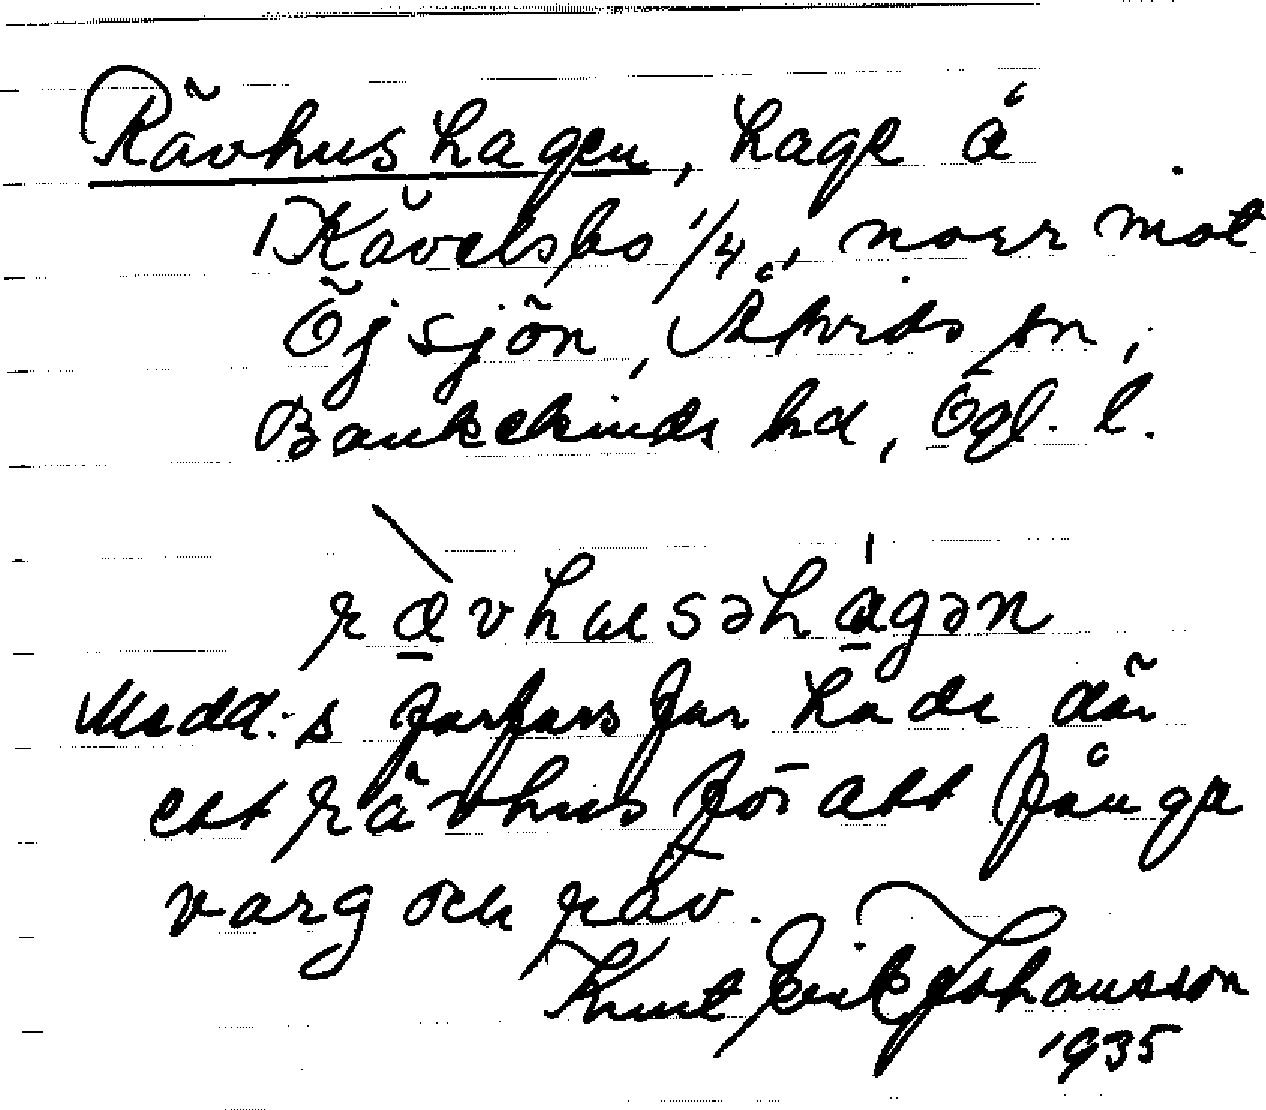 Rävhushagen, hage å
Kävelsbo 1/4, norr mot
Öjsjön, Åtvids sn,
Bankekinds hd, Ögl. l.
rävhusəhagən
Medd:s farfars far hade där
ett rävhus för att fånga
varg och räv.
Knut Erik Johansson
1935